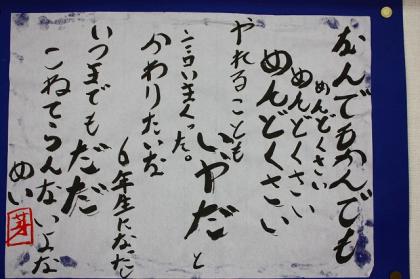 なんでもかんでも
めんどくさい
めんどくさい
めんどくさい
やれることも
いやだと
言いまくった。
かわりたいな
6年生になった
いつまでもだだ
こねてらんないよな
めい
芽